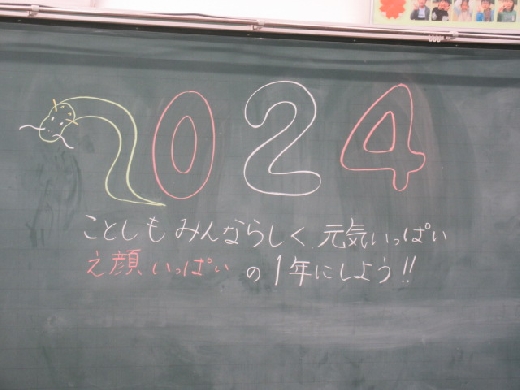 2024
ことしも みんならしく 元気いっぱい
え顔いっぱいの1年にしよう!!